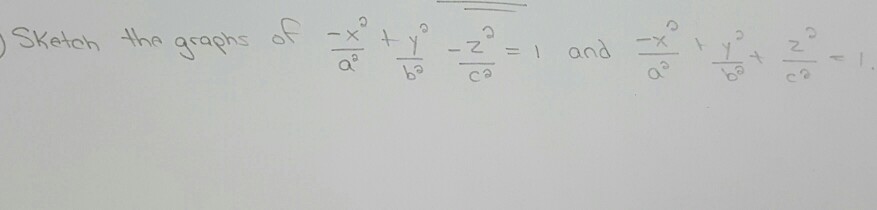 ) Sketch the graphs of -x²/a² + y²/b² - z²/c² = 1 and -x²/a² + y²/b² + z²/c² = 1.